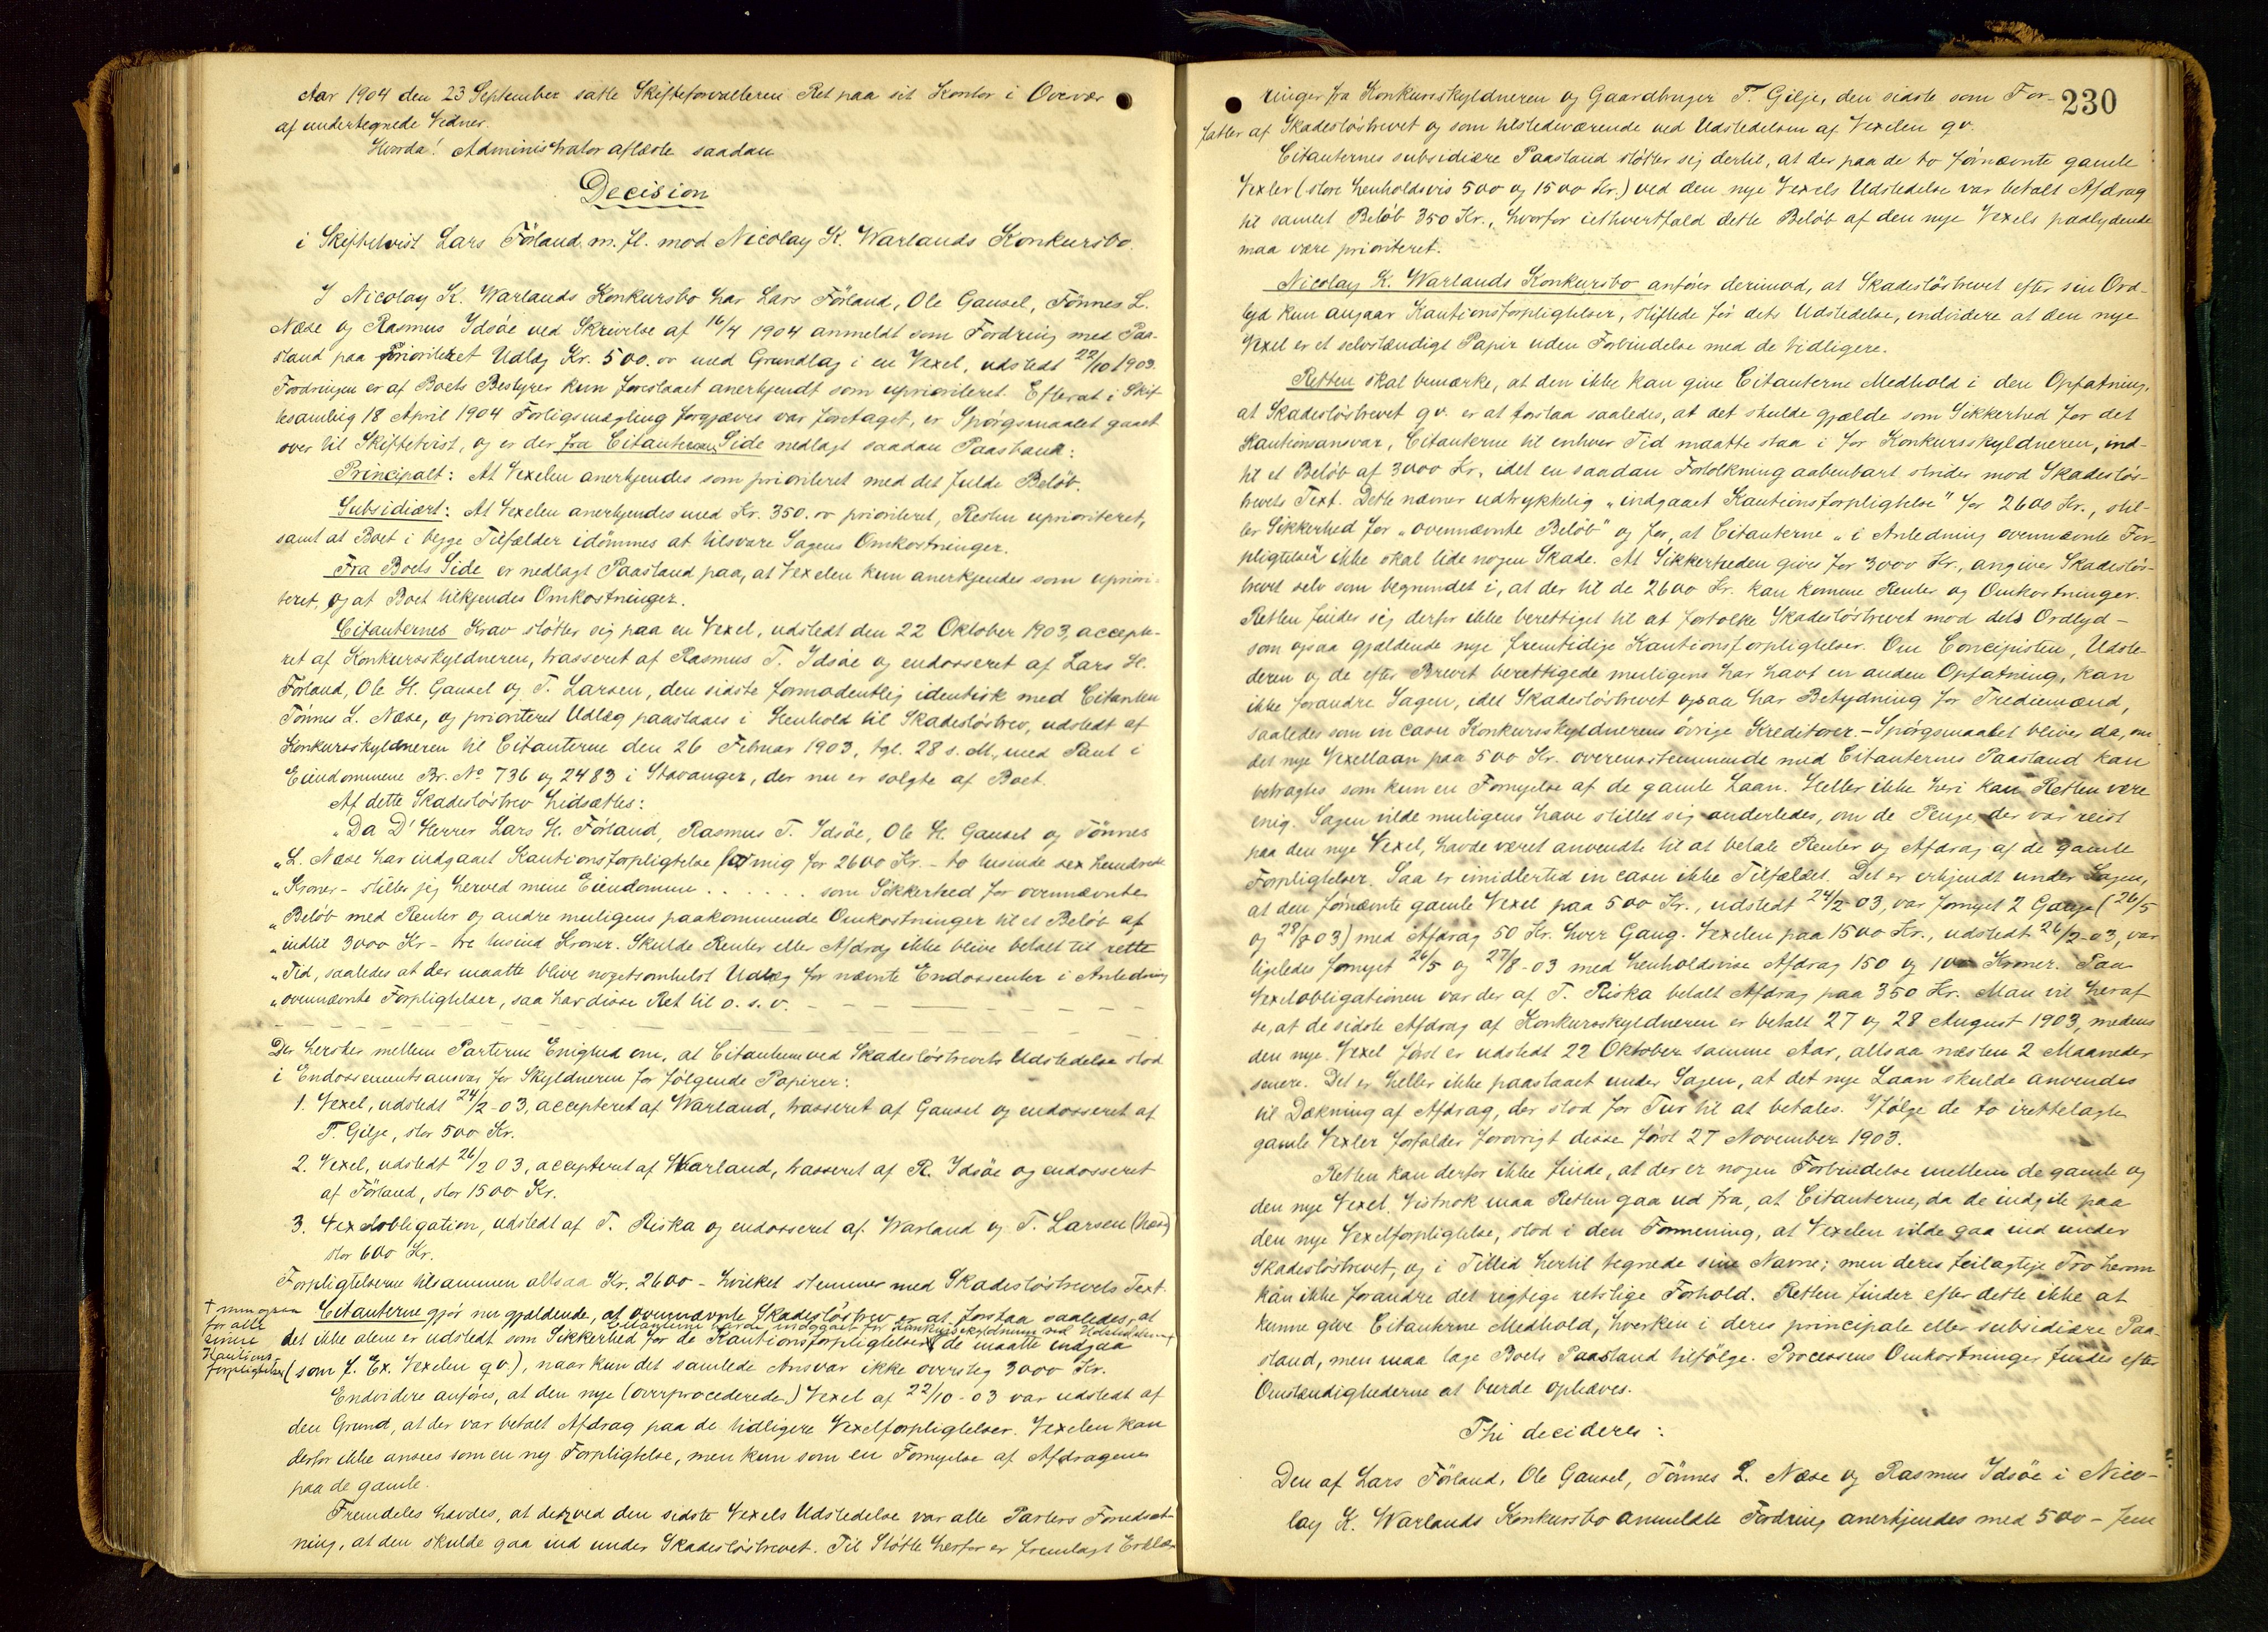 Aar 1904 den 23 September satte Skifteforvalteren Ret paa sit Kontor i Overvær
af undertegnede Vidner.
Hvorda! Administrator aflæste saadan
Decision
i Skiftetvist Lars Förland m. fl. mod Nicolay K. Warlands Konkursbo.
I Nicolay K. Warlands Konkursbo har Lars Förland, Ole Gausel, Tönnes L.
Næse og Rasmus Idsöe ved Skrivelse af 16/4 1904 anmeldt som Fordring med Paa-
stand paa prioriteret Udlæg Kr. 500.00 med Grundlag i en Vexel, udstedt 22/10 1903.
Fordringen er af Boets Bestyrer kun foreslaaet anerkjendt som uprioriteret. Efterat i Skif-
tesamling 18 April 1904 Forligsmægling forgjæves var foretaget, er Spörgsmaalet gaaet
over til Skiftetvist, og er der fra Citanternes Side nedlagt saadan Paastand:
Principalt: At Vexelen anerkjendes som prioriteret med det fulde Belöb.
Subsidiært: At Vexelen anerkjendes med Kr. 350.00 prioriteret, Resten uprioriteret,
samt at Boet i begge Tilfælder idömmes at tilsvare Sagens Omkostninger.
Fra Boets Side er nedlagt Paastand paa, at Vexelen kun anerkjendes som upriori-
teret, og at Boet tilkjendes Omkostninger.
Citanternes Krav stötter sig paa en Vexel, udstedt den 22 Oktober 1903, accepte-
ret af Konkursskyldneren, trasseret af Rasmus T. Idsöe og endosseret af Lars H.
Förland, Ole H. Gausel og T. Larsen, den sidste formodentlig identisk med Citanten
Tönnes L. Næse, og prioriteret Udlæg paastaaes i Henhold til Skadeslösbrev, udstedt af
Konkursskyldneren til Citanterne den 26 Februar 1903, tgl. 28 s. M, med Pant i
Eiendommene Br. No 736 og 2483 i Stavanger, der nu er solgte af Boet.
Af dette Skadeslösbrev hidsættes:
"Da D'Herrer Lars H. Förland, Rasmus T. Idsöe, Ole H. Gausel og Tönnes
"L. Næse har indgaaet Kautionsforpligtelse for mig for 2600 Kr. - to tusinde sex hundrede
"Kroner - stiller jeg herved mine Eiendomme . . . . . . som Sikkerhed for ovennævnte
"Belöb med Renter og andre muligens paakommende Omkostninger til et Belöb af
"indtil 3000 Kr - tre tusind Kroner. Skulde Renter eller Afdrag ikke blive betalt til rette
"Tid, saaledes at der maatte blive nogetsomhelst Udlæg for nævnte Endossenter i Anledning
"ovennævnte Forpligtelser, saa har disse Ret til o. s. v. - - - - - - -
Der hersker mellem Parterne Enighed om, at Citanterne ved Skadeslösbrevets Udstedelse stod
i Endossementsansvar for Skyldneren for fölgende Papirer:
1. Vexel, udstedt 24/2-03, accepteret af Warland, trasseret af Gausel og endosseret af
T. Gilje, stor 500 Kr.
2. Vexel, udstedt 26/2 03, accepteret af Warland, trasseret af R. Idsöe og endosseret
af Förland, stor 1500 Kr.
3. Vexelobligation, udstedt af T. Riska og endosseret af Warland og T. Larsen (Næse)
stor 600 Kr.
Forpligtelserne tilsammen altsaa Kr. 2600 - hvilket stemmer med Skadeslösbrevets Text.
Citanterne gjör nu gjældende, at ovennævnte Skadeslösbrev er at forstaa saaledes, at
Citanterne havde indgaaet for Konkursskyldneren ved Udstedelsen +
det ikke alene er udstedt som Sikkerhed for de Kautionsforpligtelser de maatte indgaa
+ men ogsaa
for alle
senere
Kautions-
forpligtelser
(som f. Ex. Vexelen qv.), naar kun det samlede Ansvar ikke oversteg 3000 Kr.
Endvidere anföres, at den nye (overprocederede) Vexel af 22/10-03 var udstedt af
den Grund, at der var betalt Afdrag paa de tidligere Vexelforpligtelser. Vexelen kan
derfor ikke ansees som en ny Forpligtelse, men kun som en Fornyelse af Afdragene
paa de gamle.
Fremdeles hævdes, at det ved den sidste Vexels Udstedelse var alle Parters Forudsæt-
ning, at den skulde gaa ind under Skadeslösbrevet. Til Stötte herfor er fremlagt Erklæ-
230
ringer fra Konkursskyldneren og Gaardbruger T. Gilje, den sidste som For-
fatter af Skadeslösbrevet og som tilstedeværende ved Udstedelsen af Vexelen qv.
Citanternes subsidiære Paastand stötter sig dertil, at der paa de to fornævnte gamle
Vexler (store henholdsvis 500 og 1500 Kr.) ved den nye Vexels Udstedelse var betalt Afdrag
til samlet Belöb 350 Kr., hvorfor iethvertfald dette Belöb af den nye Vexels paalydende
maa være prioriteret.
Nicolay K. Warlands Konkursbo anförer derimod, at Skadeslösbrevet efter sin Ord-
lyd kun angaar Kautionsforpligtelser, stiftede för dets Udstedelse, endvidere at den nye
Vexel er et selvstændigt Papir uden Forbindelse med de tidligere.
Retten skal bemærke, at den ikke kan give Citanterne Medhold i den Opfatning,
at Skadeslösbrevet qv. er at forstaa saaledes, at det skulde gjælde som Sikkerhed for det
Kautionsansvar, Citanterne til enhver Tid maatte staa i for Konkursskyldneren, ind-
til et Belöb af 3000 Kr, idet en saadan Fortolkning aabenbart strider mod Skadeslös-
brevets Text. Dette nævner udtrykkelig "indgaaet Kautionsforpligtelse" for 2600 Kr., stil-
ler Sikkerhed for "ovennævnte Belöb" og for, at Citanterne "i Anledning ovennævnte For-
pligtelse" ikke skal lide nogen Skade. At Sikkerheden gives for 3000 Kr., angives Skadeslös-
brevet selv som begrundet i, at der til de 2600 Kr. kan komme Renter og Omkostninger.
Retten finder sig derfor ikke berettiget til at fortolke Skadeslösbrevet mod dets Ordlyd -
som ogsaa gjældende nye fremtidige Kautionsforpligtelser. Om Concipisten, Udste-
deren og de efter Brevet berettigede muligens har havt en anden Opfatning, kan
ikke forandre Sagen, idet Skadeslösbrevet ogsaa har Betydning for Trediemænd,
saaledes som in casu Konkursskyldnerens övrige Kreditorer. - Spörgsmaalet bliver da, om
det nye Vexellaan paa 500 Kr. overensstemmende med Citanternes Paastand kan
betragtes som kun en Fornyelse af de gamle Laan. Heller ikke heri kan Retten være
enig. Sagen vilde muligens have stillet sig anderledes, om de Penge, der var reist
paa den nye Vexel, havde været anvendte til at betale Renter og Afdrag af de gamle
Forpligtelser. Saa er imidlertid in casu ikke Tilfældet. Det er erkjendt under Sagen,
at den fornævnte gamle Vexel paa 500 Kr., udstedt 24/2 03, var fornyet 2 Gange (26/5
og 28/8 03) med Afdrag 50 Kr. hver Gang. Vexelen paa 1500 Kr., udstedt 26/2-03, var
ligeledes fornyet 26/5 og 27/8-03 med henholdsvise Afdrag 150 og 100 Kroner. Paa
Vexelobligationen var der af T. Riska betalt Afdrag paa 350 Kr. Man vil heraf
se, at de sidste Afdrag af Konkursskyldneren er betalt 27 og 28 August 1903, medens
den nye Vexel först er udstedt 22 Oktober samme Aar, altsaa næsten 2 Maaneder
senere. Det er heller ikke paastaaet under Sagen, at det nye Laan skulde anvendes
til Dækning af Afdrag, der stod for Tur til at betales. Ifölge de to irettelagte
gamle Vexler forfalder forövrigt disse först 27 November 1903.
Retten kan derfor ikke finde, at der er nogen Forbindelse mellem de gamle og
den nye Vexel. Vistnok maa Retten gaa ud fra, at Citanterne, da de indgik paa
den nye Vexelforpligtelse, stod i den Formening, at Vexelen vilde gaa ind under
Skadeslösbrevet, og i Tillid hertil tegnede sine Navne; men deres feilagtige Tro herom
kan ikke forandre det rigtige retslige Forhold. Retten finder efter dette ikke at
kunne give Citanterne Medhold, hverken i deres principale eller subsidiære Paa-
stand, men maa tage Boets Paastand tilfölge. Processens Omkostninger findes efter
Omstændighederne at burde ophæves.
Thi decideres:
Den af Lars Förland, Ole Gausel, Tönnes L. Næse og Rasmus Idsöe i Nico-
lay K. Warlands Konkursbo anmeldte Fordring anerkjendes med 500 - fem